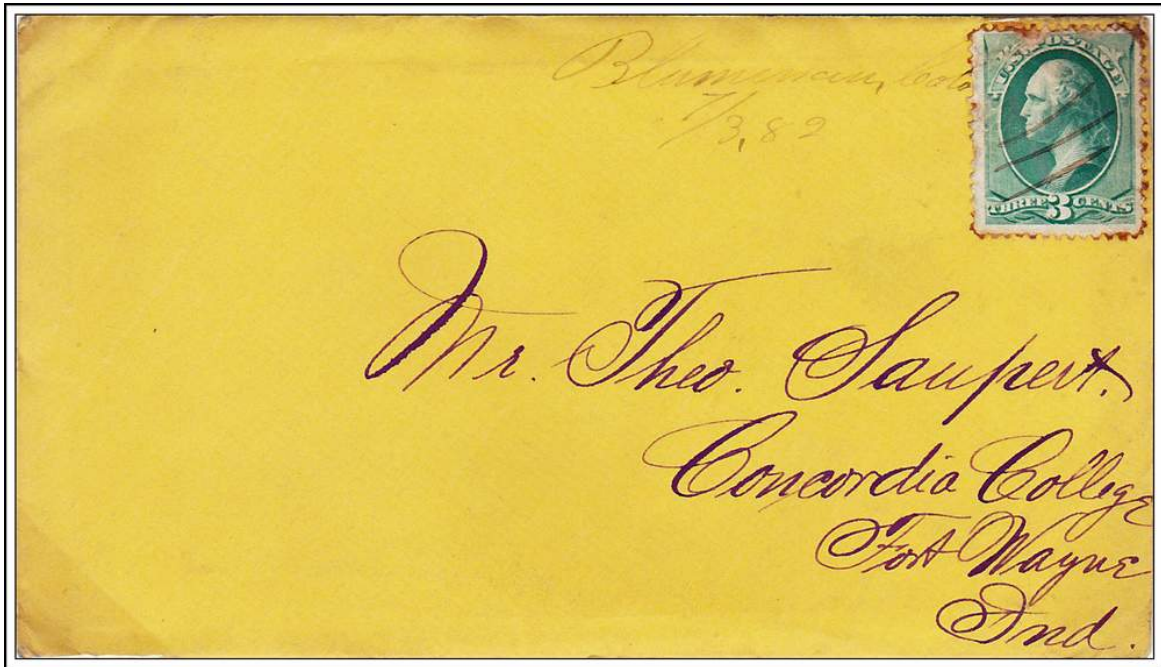 Blumenau, Colo
7/3, 82
U.S. POSTAGE
THREE 3 CENTS
Mr. Theo. Saupert.
Concordia College
Fort Wayne
Ind.